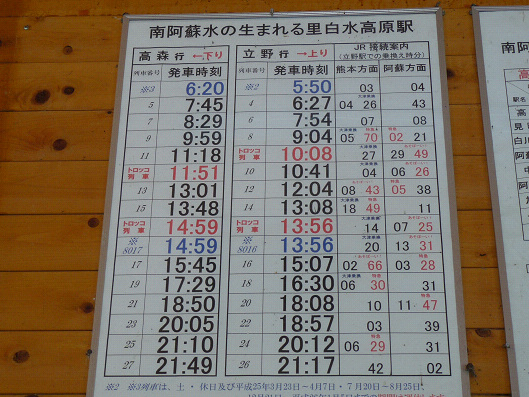 南阿蘇水の生まれる里白水高原駅
高森行 ←下り 立野行 →上り JR接続案内
(立野駅での乗換え時分)
列車番号 発車時刻 列車番号 発車時刻 熊本方面 阿蘇方面
※3 6:20 ※2 5:50 03 04
5 7:45 4 6:27 04 26 43
7 8:29 6 7:54 07 08
9 9:59 8 9:04 05 70 02 21
11 11:18 トロッコ列車 10:08 27 29 49
トロッコ列車 11:51 10 10:41 04 06 26
13 13:01 12 12:04 08 43 05 38
15 13:48 14 13:08 18 49 11
トロッコ列車 14:59 トロッコ列車 13:56 14 07 25
※8017 14:59 ※8016 13:56 20 13 31
17 15:45 16 15:07 02 66 03 28
19 17:29 18 16:30 06 30 31
21 18:50 20 18:08 10 11 47
23 20:05 22 18:57 03 39
25 21:10 24 20:12 06 29 31
27 21:49 26 21:17 42 02
※2 ※3列車は、土・休日及び平成25年3月23日~4月7日・7月20日~8月25日、
駅名
高
見
白川
阿蘇
中